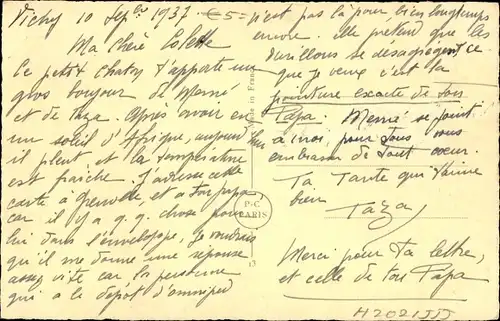 Vichy 10 Sept 1937.
Ma Chère Colette
Ce petit Chaton t'apporte un
gros bonjour de Mémé
et de Taza. Après avoir eu
un soleil d'Afrique, aujourd'hui
il pleut et la température
est fraîche. J'adresse cette
carte à Grenoble, et à ton papa
car il y a q.q. chose pour
lui dans l'enveloppe, je voudrais
qu'il me donne une réponse
assez vite car la personne
qui a le dépôt
€5=
n'est pas là pour bien longtemps
encore. Elle prétend que les
se désagrègent ce
que je veux c'est la
pointure exacte de ton
Papa. Mémé se joint
à moi, pour tous vous
embrasser de tout cœur.
Ta Tante qui t'aime
bien
Taza
Merci pour ta lettre,
et celle de ton Papa
Made in France
P-C
PARIS
13
H2021JJJ